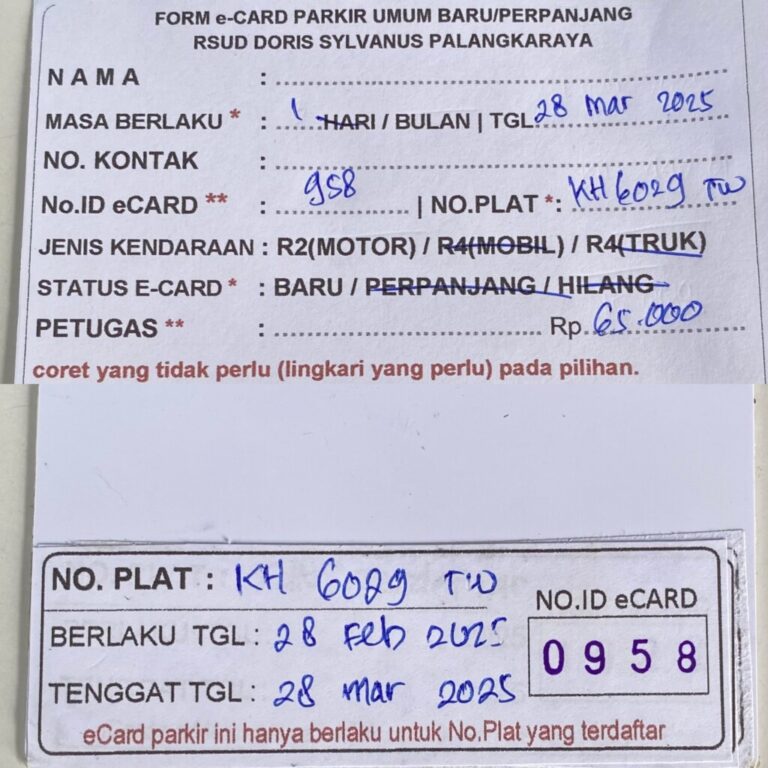 FORM e-CARD PARKIR UMUM BARU/PERPANJANG
RSUD DORIS SYLVANUS PALANGKARAYA
NAMA :
MASA BERLAKU * : 1 HARI / BULAN | TGL 28 Mar 2025
NO. KONTAK :
No.ID eCARD ** : 958 | NO.PLAT *: KH 6029 TW
JENIS KENDARAAN : R2(MOTOR) / R4(MOBIL) / R4(TRUK)
STATUS E-CARD * : BARU / PERPANJANG / HILANG
PETUGAS ** : Rp. 65.000
coret yang tidak perlu (lingkari yang perlu) pada pilihan.
NO. PLAT : KH 6029 TW
NO.ID eCARD
BERLAKU TGL : 28 Feb 2025
0958
TENGGAT TGL : 28 Mar 2025
eCard parkir ini hanya berlaku untuk No.Plat yang terdaftar